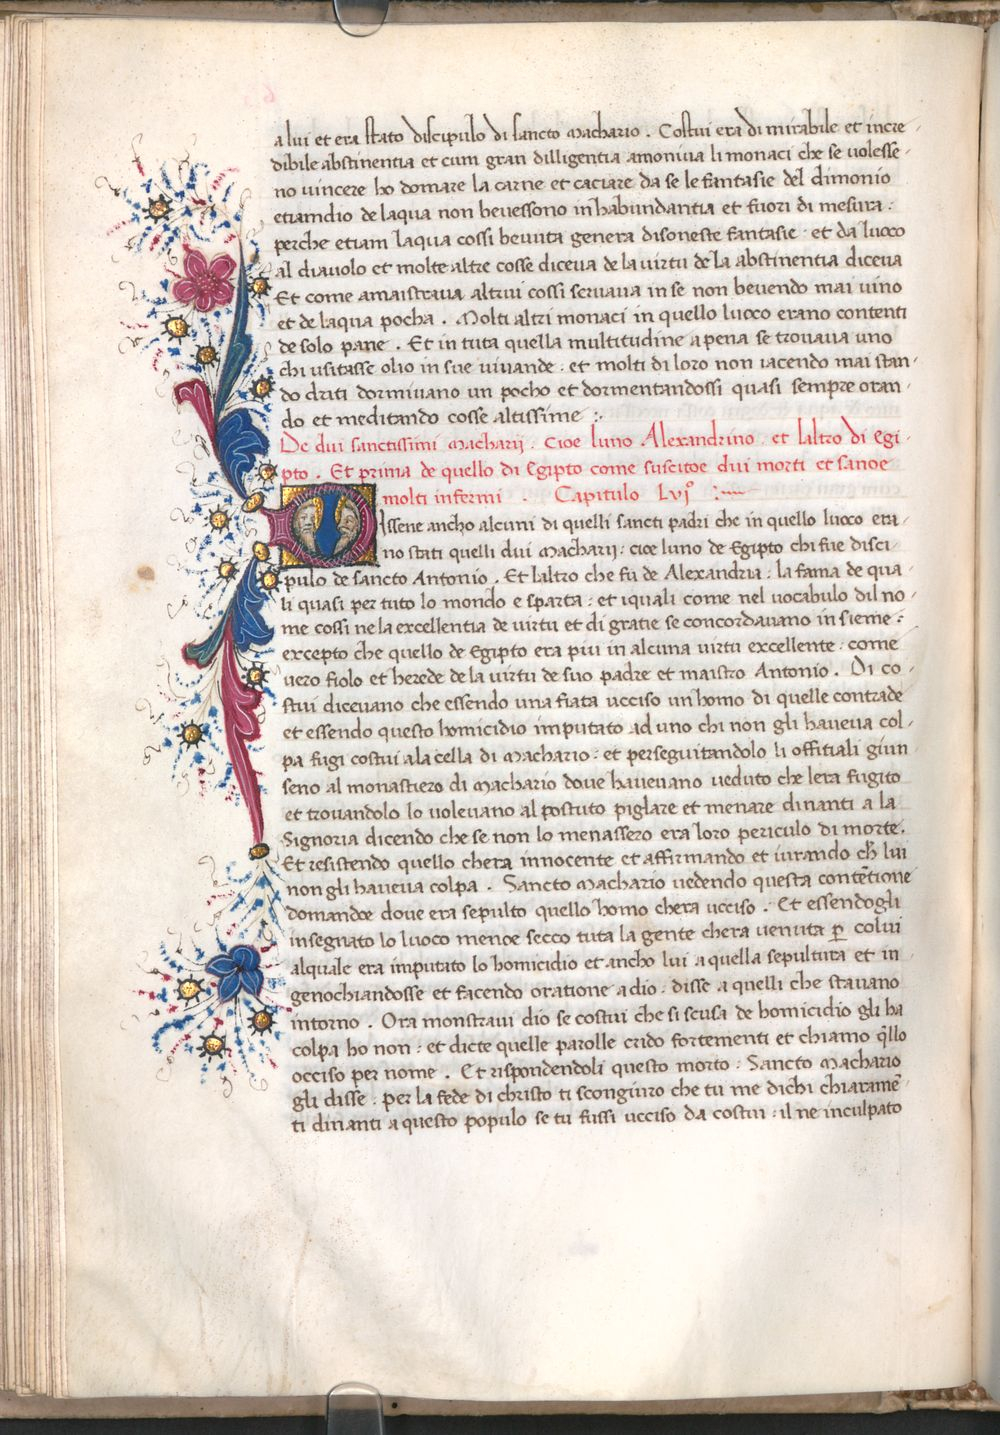 a lui et era stato discipulo di sancto Machario . Costui era di mirabile et incre-
dibile abstinentia et cum gran dilligentia amoniua li monaci che se uolesse-
no uincere ho domare la carne et caciare da se le fantasie del dimonio
etiamdio de laqua non beuessono in habundantia et fuori di mesura :
perche etiam laqua cossi beuuta genera disoneste fantasie · et da luoco
al diauolo et molte altre cosse diceua de la uirtu de la abstinentia diceua
Et come amaistraua altrui cossi seruaua in se non beuendo mai uino
et de laqua pocha . Molti altri monaci in quello luoco erano contenti
de solo pane . Et in tuta quella multitudine apena se trouaua uno
chi usitasse olio in sue uiuande : et molti di loro non iacendo mai stan-
do driti dormiuano un pocho et dormentandossi quasi sempre oran-
do et meditando cosse altissime :·
De dui sanctissimi Macharij . cioe luno Alexandrino . et laltro di Egi-
pto . Et prima de quello di Egipto come suscitoe dui morti et sanoe
molti infermi . Capitulo Lvjº :~
Issene ancho alcuni di quelli sancti padri che in quello luoco era-
no stati quelli dui Macharij : cioe luno de Egipto chi fue disci-
pulo de sancto Antonio . Et laltro che fu de Alexandria : la fama de qua-
li quasi per tuto lo mondo e sparta : et iquali come nel uocabulo dil no-
me cossi ne la excellentia de uirtu et di gratie se concordauano in sieme :
excepto che quello de Egipto era piu in alcuna uirtu excellente : come
uero fiolo et herede de la uirtu de suo padre et maistro Antonio . Di co-
stui diceuano che essendo una fiata ucciso un homo di quelle contrade
et essendo questo homicidio imputato ad uno chi non gli haueua col-
pa fugi costui ala cella di Machario : et perseguitandolo li offitiali giun-
seno al monastiero di Machario doue haueuano ueduto che lera fugito
et trouandolo lo uoleuano al postuto pigliare et menare dinanti a la
Signoria dicendo che se non lo menassero era loro periculo di morte.
Et resistendo quello chera innocente et affirmando et iurando ch̄ lui
non gli haueua colpa . Sancto Machario uedendo questa contētione
domandoe doue era sepulto quello homo chera ucciso . Et essendogli
insegnato lo luoco menoe secco tuta la gente chera uenuta ꝑ colui
alquale era imputato lo homicidio et ancho lui a quella sepultura et in-
genochiandosse et facendo oratione a dio : disse a quelli che stauano
intorno . Ora monstraui dio se costui che si scusa de homicidio gli ha
colpa ho non : et dicte quelle parolle crido fortementi et chiamo q̄llo
occiso per nome . Et rispondendoli questo morto : Sancto Machario
gli disse : per la fede di christo ti sconguiro che tu me dichi chiaramē-
ti dinanti a questo populo se tu fussi ucciso da costui : il ne inculpato